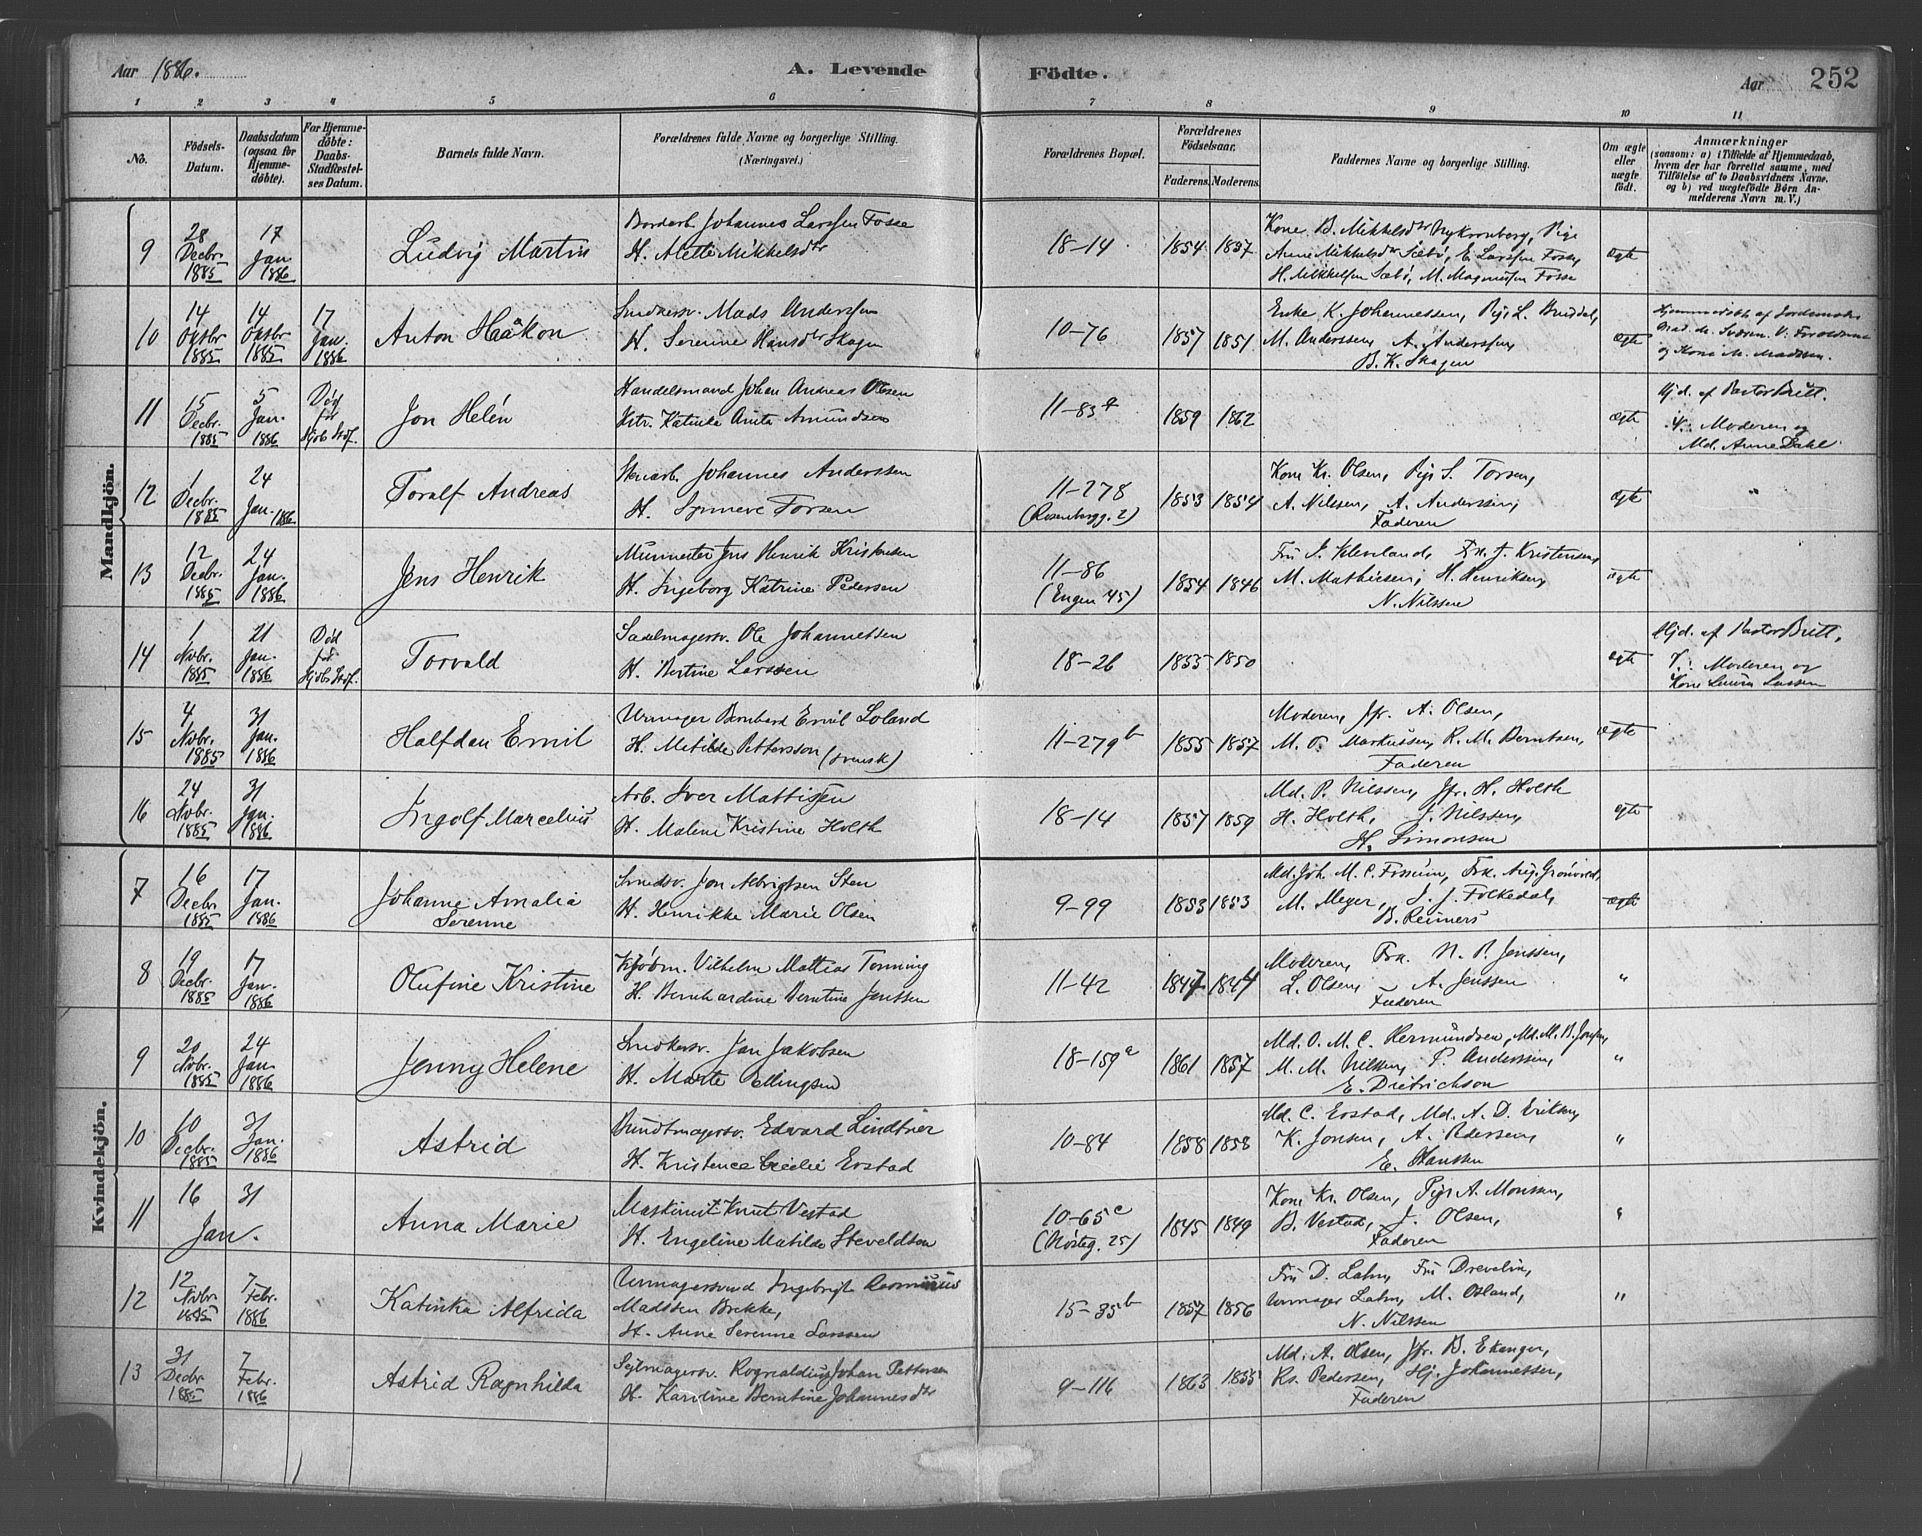 Aar 1886.
A. Levende Födte.
Aar 252
1 2 3 4 5 6 7 8 9 10 11
No.
Födsels-Datum.
Daabsdatum (ogsaa for Hjemme-döbte).
For Hjemme-döbte: Daabs-Stadfæstel-ses Datum.
Barnets fulde Navn.
Forældrenes fulde Navne og borgerlige Stilling.
(Næringsvei.)
Forældrenes Bopæl.
Forældrenes Födselsaar.
Faderens. Moderens.
Faddernes Navne og borgerlige Stilling.
Om ægte eller uægte födt.
Anmærkninger
(saasom: a) i Tilfælde af Hjemmedaab, hvem der har forrettet samme, med Tilföielse af to Daabsvidners Navne. og b) ved uægtefödte Börn An-melderens Navn m. V.)
Mandkjön.
9 28 Decbr. 1885 17 Jan. 1886 Ludvig Martin
Bordarb. Johannes Larssen Fosse
H. Alette Mikkelsdtr
18-14 1854 1857
Kone B. Mikkelsdtr Pige
Anne Mikkelsdtr Sæbö, E. Larssen Fosse,
H. Mikkelsen Sæbö, M. Magnussen Fosse
ægte
10 14 Oktbr. 1885 14 Oktbr. 1885 17 Jan. 1886 Anton Haakon
Snedkersv. Mads Anderssen
H. Serenne Hansdtr Skagen
10-76 1857 1851
Enke K. Johannessen, Pige L.
M. Anderssen, A. Anderssen,
B. K. Skagen
ægte
Hjemmedöbt af Jordemoder
V. Forældrene
og Kone M. Madssen.
11 15 Decbr. 1885 5 Jan. 1886 Död för Hjdb. Stdf. Jon Helén
Handelsmand Johan Andreas Olsen
Katinka Anita Amundsen
11-83a 1859 1862 ægte
Hjd. af Pastor Britt.
V. Moderen og
Md. Anne Dahl
12 1 Decbr. 1885 24 Jan. 1886 Toralf Andreas
Johannes Anderssen
H. Synneve Torsen
11-278
(Rosenbergg. 2)
1853 1854
Kone Kr. Olsen, Pige S. Torsen,
A. Nilssen, A. Anderssen,
Faderen
ægte "
13 12 Decbr. 1885 24 Jan. 1886 Jens Henrik
Murmester Jens Henrik Kristensen
H. Ingeborg Katrine Pedersen
11-86
(Engen 45)
1854 1846
Fru J. Kleveland, Frk. J. Kristensen,
M. Mathiesen, H. Henriksen,
N. Nilssen
ægte
14 1 Novbr. 1885 21 Jan. 1886 Död för Hjdb. Stdf. Torvald
Sadelmagersv. Ole Johannessen
H. Bertine Larssen
18-26 1855 1850 ægte
Hjd. af Pastor Britt.
V.: Moderen og
Kone Larssen
15 4 Novbr. 1885 31 Jan. 1886 Halfdan Emil
Urmager Bernhard Emil Loland
H. Matilde Pettersson (svensk)
11-279b 1855 1857
Moderen, Jfr. A. Olsen,
M. T. Markussen, R. M. Berntsen,
Faderen
ægte
16 24 Novbr. 1885 31 Jan. 1886 Ingolf Marcelius
Arb. Iver Mattissen
H. Malene Kristine Holth
18-14 1857 1859
Md. P. Nilssen, Jfr. H. Holth
H. Holth, J. Nilssen,
H. Simonsen
ægte
Kvindekjön.
7 16 Decbr. 1885 17 Jan. 1886 Johanne Amalia
Serenne
Smedsv. Jon Albrigtsen Sten
H. Henrikke Marie Olsen
9-99 1853 1853
Md. Joh. M. C. Fossum, Frk. Aug. Grönvold,
M. Meyer, J. J. Folkedal,
B. Reimers
ægte
8 19 Decbr. 1885 17 Jan. 1886 Olufine Kristine
Kjöbm. Vilhelm Mattias Tonning
H. Bernhardine Berntine Janssen
11-42 1847 1844
Moderen, Frk. N. P. Jenssen,
L. Olsen, A. Jenssen
Faderen
"
9 20 Novbr. 1885 24 Jan. 1886 Jenny Helene
Snedkersv. Jan Jakobsen
H. Marte Ellingsen
18-159a 1861 1857
Md. O. M. C. Hermundsen, Md. M. B.
M. M. Nilssen, P. Anderssen,
E. Dietrichson
"
10 10 Decbr. 1885 31 Jan. 1886 Astrid
Bundtmagersv. Edvard Lindtner
H. Kristence Cecilie Evstad
10-84 1858 1858
Md. C. Evstad, Md. A. D. Eriksen,
K. Jonsen, A. Pedersen,
E. Hanssen
"
11 16 31 Jan. Anna Marie
Maskinist Knut Vestad
H. Engeline Matilde Steveldson
10-65c
(Nösteg. 25)
1845 1849
Kone Kr. Olsen, Pige A. Monssen,
B. Vestad, J. Olsen,
Faderen
"
12 12 Novbr. 1885 7 Febr. 1886 Katinka Alfrida
Urmagersvend Ingebrigt Rasmus
Madssen Brekke,
H. Anne Serenne Larssen
15-35b 1857 1856
Fru D. Lahn, Fru Drevelin,
Urmager Lahn, M. Osland,
N. Nilssen
"
13 31 Decbr. 1885 7 Febr. 1886 Astrid Ragnhilda
Seilmagersv. Rognvaldius Johan Pettersen
H. Karoline Berntine Johannesdtr
9-116 1863 1855
Md. A. Olsen, Jfr. B. Ekanger,
Ks. Pedersen, Hj. Johannessen,
Faderen